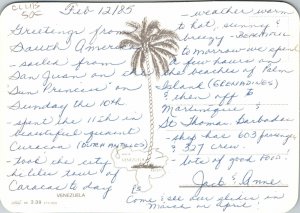 CLUB
50¢
Feb 12/85
Greetings from
South America
- sailed from
San Juan on the
Sun Princess on
Sunday the 10th
spent the 11th in
beautiful quaint
Curacao
- took the city
tour of
Caracas to day
VENEZUELA
- weather warm
to hot, sunny &
breezy -
to-morrow we spend
a few hours on
the beaches of Palm
Island
& then off to
Martinique &
St Thomas Barbados
- ship has 603 passengers
& 337 crew.
- lots of good food!
Jack & Anne
P.S.
Come & see our slides in
March or April!